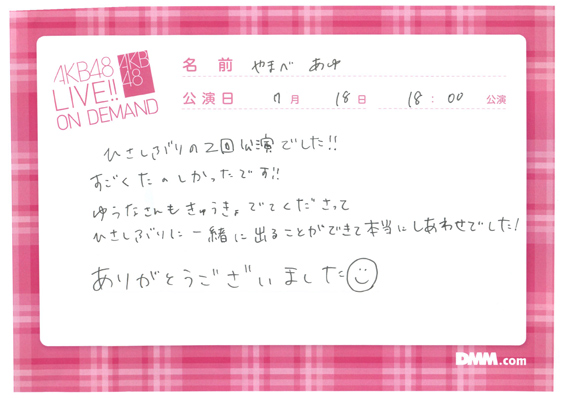 AKB48
LIVE!!
ON DEMAND
AKB
48
名 前 やまべ あゆ
公演日 7月 18日 18:00 公演
ひさしぶりの2回公演でした!!
すごくたのしかったです!!
ゆうなさんもきゅうきょでてくださって
ひさしぶりに一緒に出ることができて本当にしあわせでした!
ありがとうございました
DMM.com